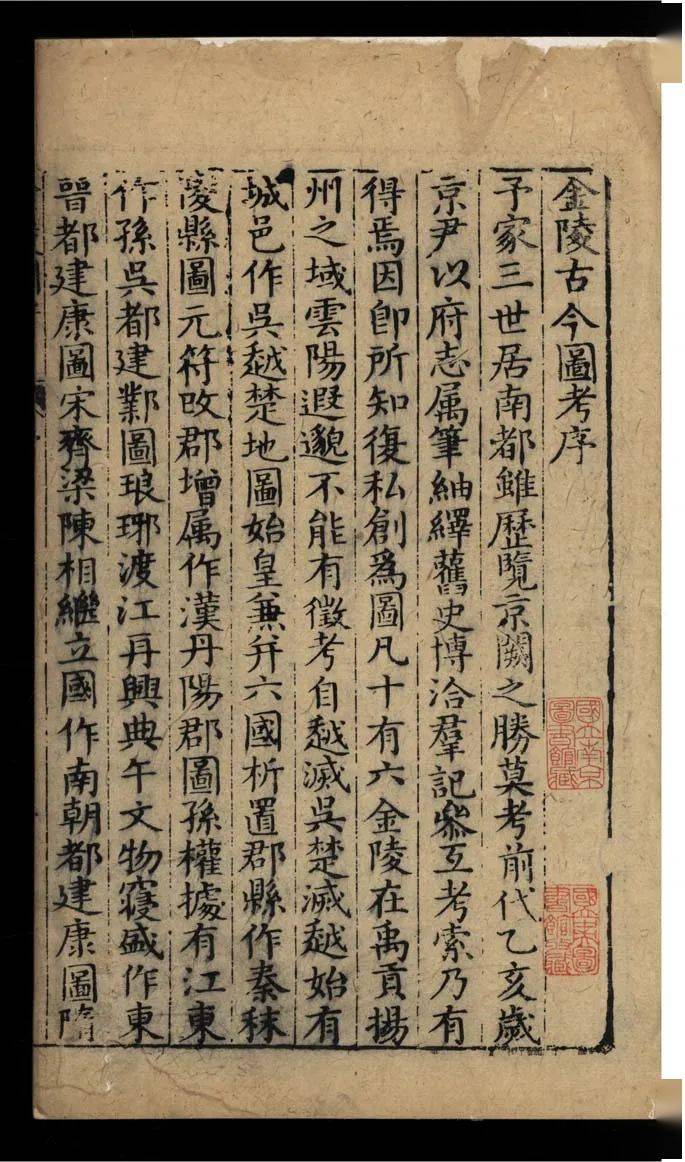 金陵古今圖考序
予家三世居南都雖歷覽京闕之勝莫考前代乙亥歲
京尹以府志属筆紬繹舊史博洽羣記叅互考索乃有
得焉因卽所知復私創爲圖凡十有六金陵在禹貢揚
州之域雲陽遐邈不能有徵考自越滅吳楚滅越始有
城邑作吳越楚地圖始皇兼并六國析置郡縣作秦秣
陵縣圖元符改郡增属作漢丹陽郡圖孫權據有江東
作孫吳都建鄴圖琅琊渡江再興典午文物寖盛作東
晉都建康圖宋齊梁陳相繼立國作南朝都建康圖隋
國立南京
圖書館藏